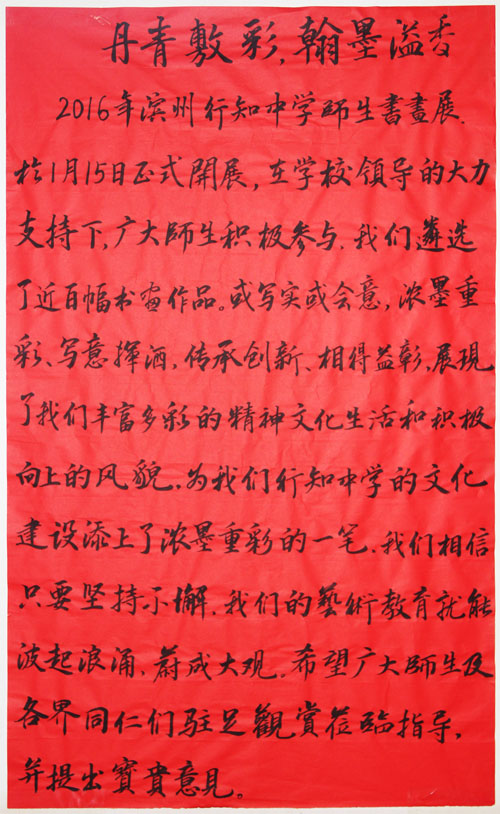 丹青敷彩,翰墨溢香
2016年滨州行知中学師生書畫展.
於1月15日正式開展,在学校領导的大力
支持下,广大師生积极参与.我们遴选
了近百幅书画作品。或写实或会意,浓墨重
彩、写意揮洒,传承创新、相得益彰,展現
了我们丰富多彩的精神文化生活和积极
向上的风貌,为我们行知中学的文化
建设添上了浓墨重彩的一笔.我们相信
只要坚持不懈,我们的藝術教育就能
波起浪涌、蔚成大观.希望广大師生及
各界同仁们驻足觀賞莅臨指导,
并提出寶貴意見。